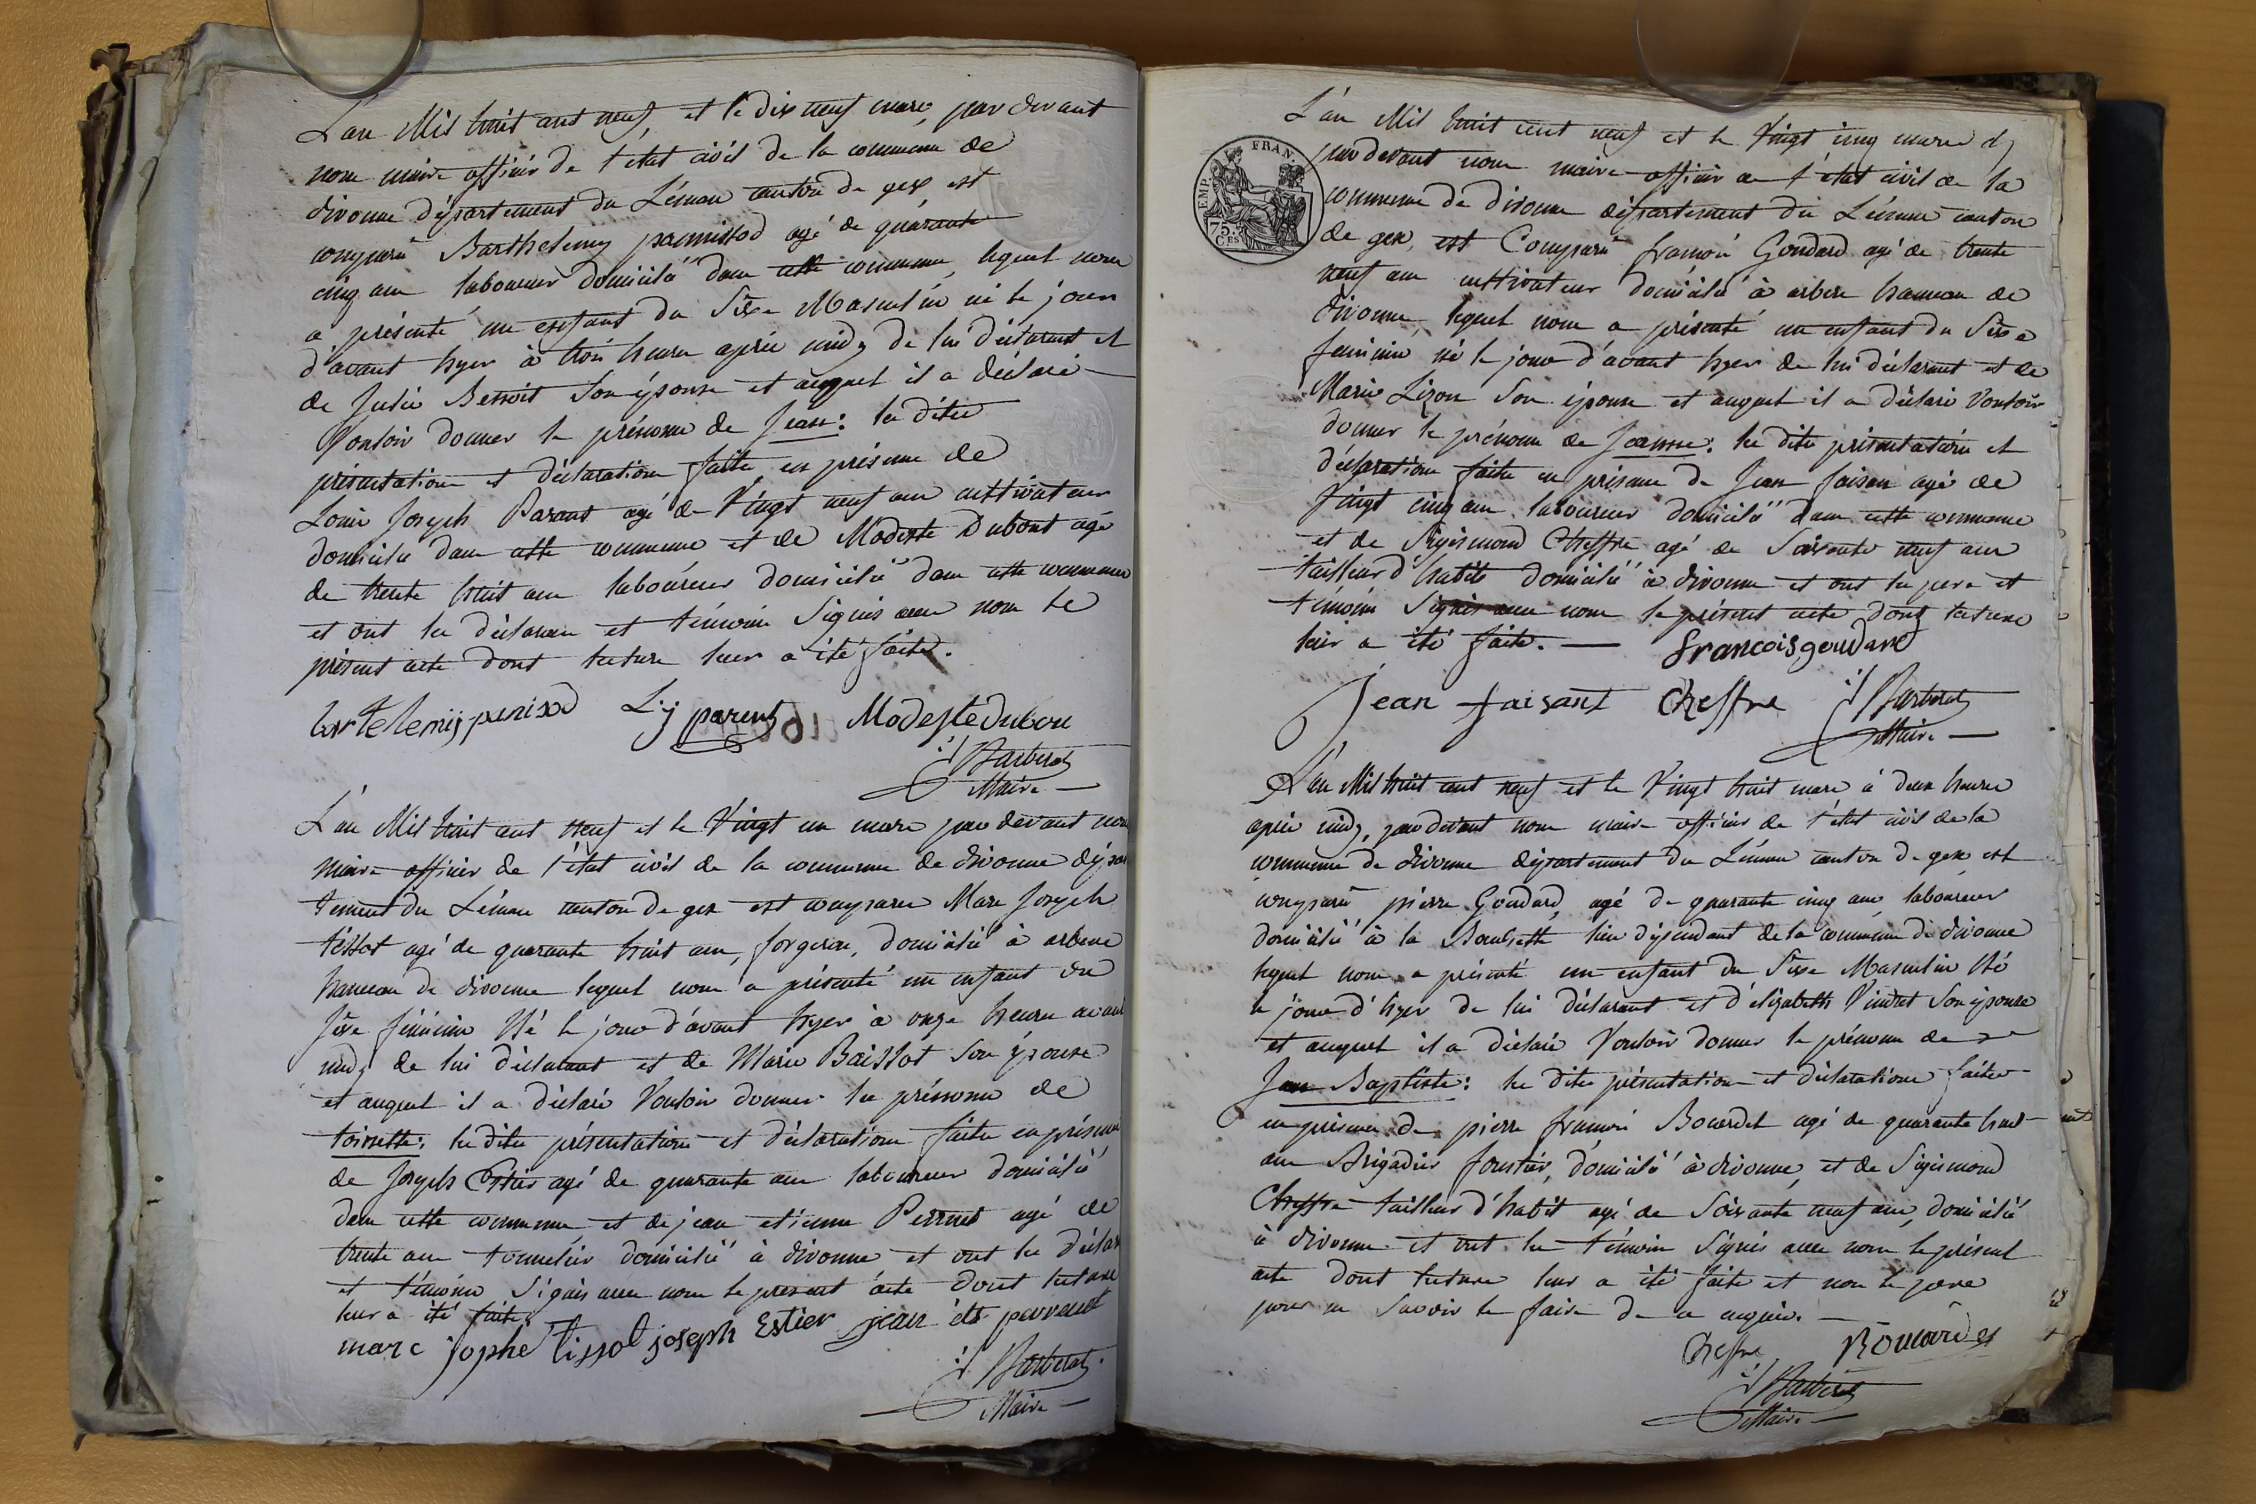 L'an Mil huit cent neuf, et le dix neuf mars, par devant
nous maire officier de l'état civil de la commune de
divonne département du Léman canton de gex est
comparu Barthelemy pannissod agé de quarante
cinq ans laboureur domicilié dans cette commune, lequel nous
a présenté un enfant du Sexe Masculin né le jour
d'avant hyer à trois heures après midy de lui déclarant et
de Julie Benoit Son épouse et auquel il a déclaré
Vouloir donner le prénom de Jean: la ditte
présentation et déclaration faite en présence de
Louis Joseph Parant agé de Vingt neuf ans cultivateur
domicilié dans cette commune et de Modeste Dubout agé
de trente huit ans laboureur domicilié dans cette commune
et ont les déclarans et témoins Signés avec nous le
présent acte dont lecture leur a été faite.
bartelemij panisod L: j parent Modeste dubou
Barberat
Maire
L'an Mil huit cent Neuf et le Vingt un mars par devant nous
maire officier de l'état civil de la commune de divonne dépar
tement du Léman canton de gex est comparu Marc Joseph
tissot agé de quarante huit ans, forgeron, domicilié à arbere
hameau de divonne lequel nous a présenté un enfant du
Sexe féminin Né le jour d'avant hyer à onze heures avant
midy de lui déclarant et de Marie Baissot Son épouse
et auquel il a déclaré Vouloir donner le prénom de
toinette: les dites présentation et déclaration faites en présence
de Joseph Estier agé de quarante ans laboureur domicilié
dans cette commune, et de jean etienne Perrnet agé de
trente ans tonnelier domicilié à divonne et ont les déclar
et témoins Signés avec nous le present acte dont lecture
leur a été faite.
marc jophe tissot joseph Estier jean ete perrenot
Barberat
Maire
FRAN.
EMP.
75.
CES
L'an Mil huit cent neuf et le Vingt cinq mars
par devant nous maire officier de l'état civil de la
commune de divonne département du Léman canton
de gex, est Comparu françois Goudard agé de trente
neuf ans cultivateur domicilié à arbere hameau de
divonne, lequel nous a présenté un enfant du Sexe
feminin né le jour d'avant hyer de lui déclarant et de
Marie Lizon Son épouse et auquel il a déclaré Vouloir
donner le prénom de Jeanne: les dites présentation et
déclaration faites en présence de Jean faisan agé de
Vingt cinq ans laboureur domicilié dans cette commune
et de Sigismond Cheffre agé de Soixante neuf ans
tailleur d'habits domicilié à divonne et ont les pere et
témoins Signés avec nous le présent acte dont lecture
leur a été faite. francois goudard
Jean faisant Cheffre Barberat
Maire
L'an Mil huit cent neuf et le Vingt huit mars à deux heures
après midy, par devant nous maire officier de l'état civil de la
commune de divonne département du Léman canton de gex est
comparu pierre Goudard, agé de quarante cinq ans, laboureur
domicilié à la lieu dépendant de la commune de divonne
lequel nous a présenté un enfant du Sexe Masculin Né
le jour d'hyer de lui déclarant et d'elizabeth Vindret Son épouse
et auquel il a déclaré Vouloir donner le prénom de
Jean Baptiste: les dites présentation et déclaration faites
en présence de pierre françois Bouerdet agé de quarante huit
ans Brigadier forestier, domicilié à divonne, et de Sigismond
Cheffre tailleur d'habit agé de Soixante neuf ans, domicilié
à divonne et ont les témoins Signés avec nous le présent
acte dont lecture leur a été faite et non le père
pour ne Savoir le faire de ce enquis.
Cheffre
Barberat
Maire